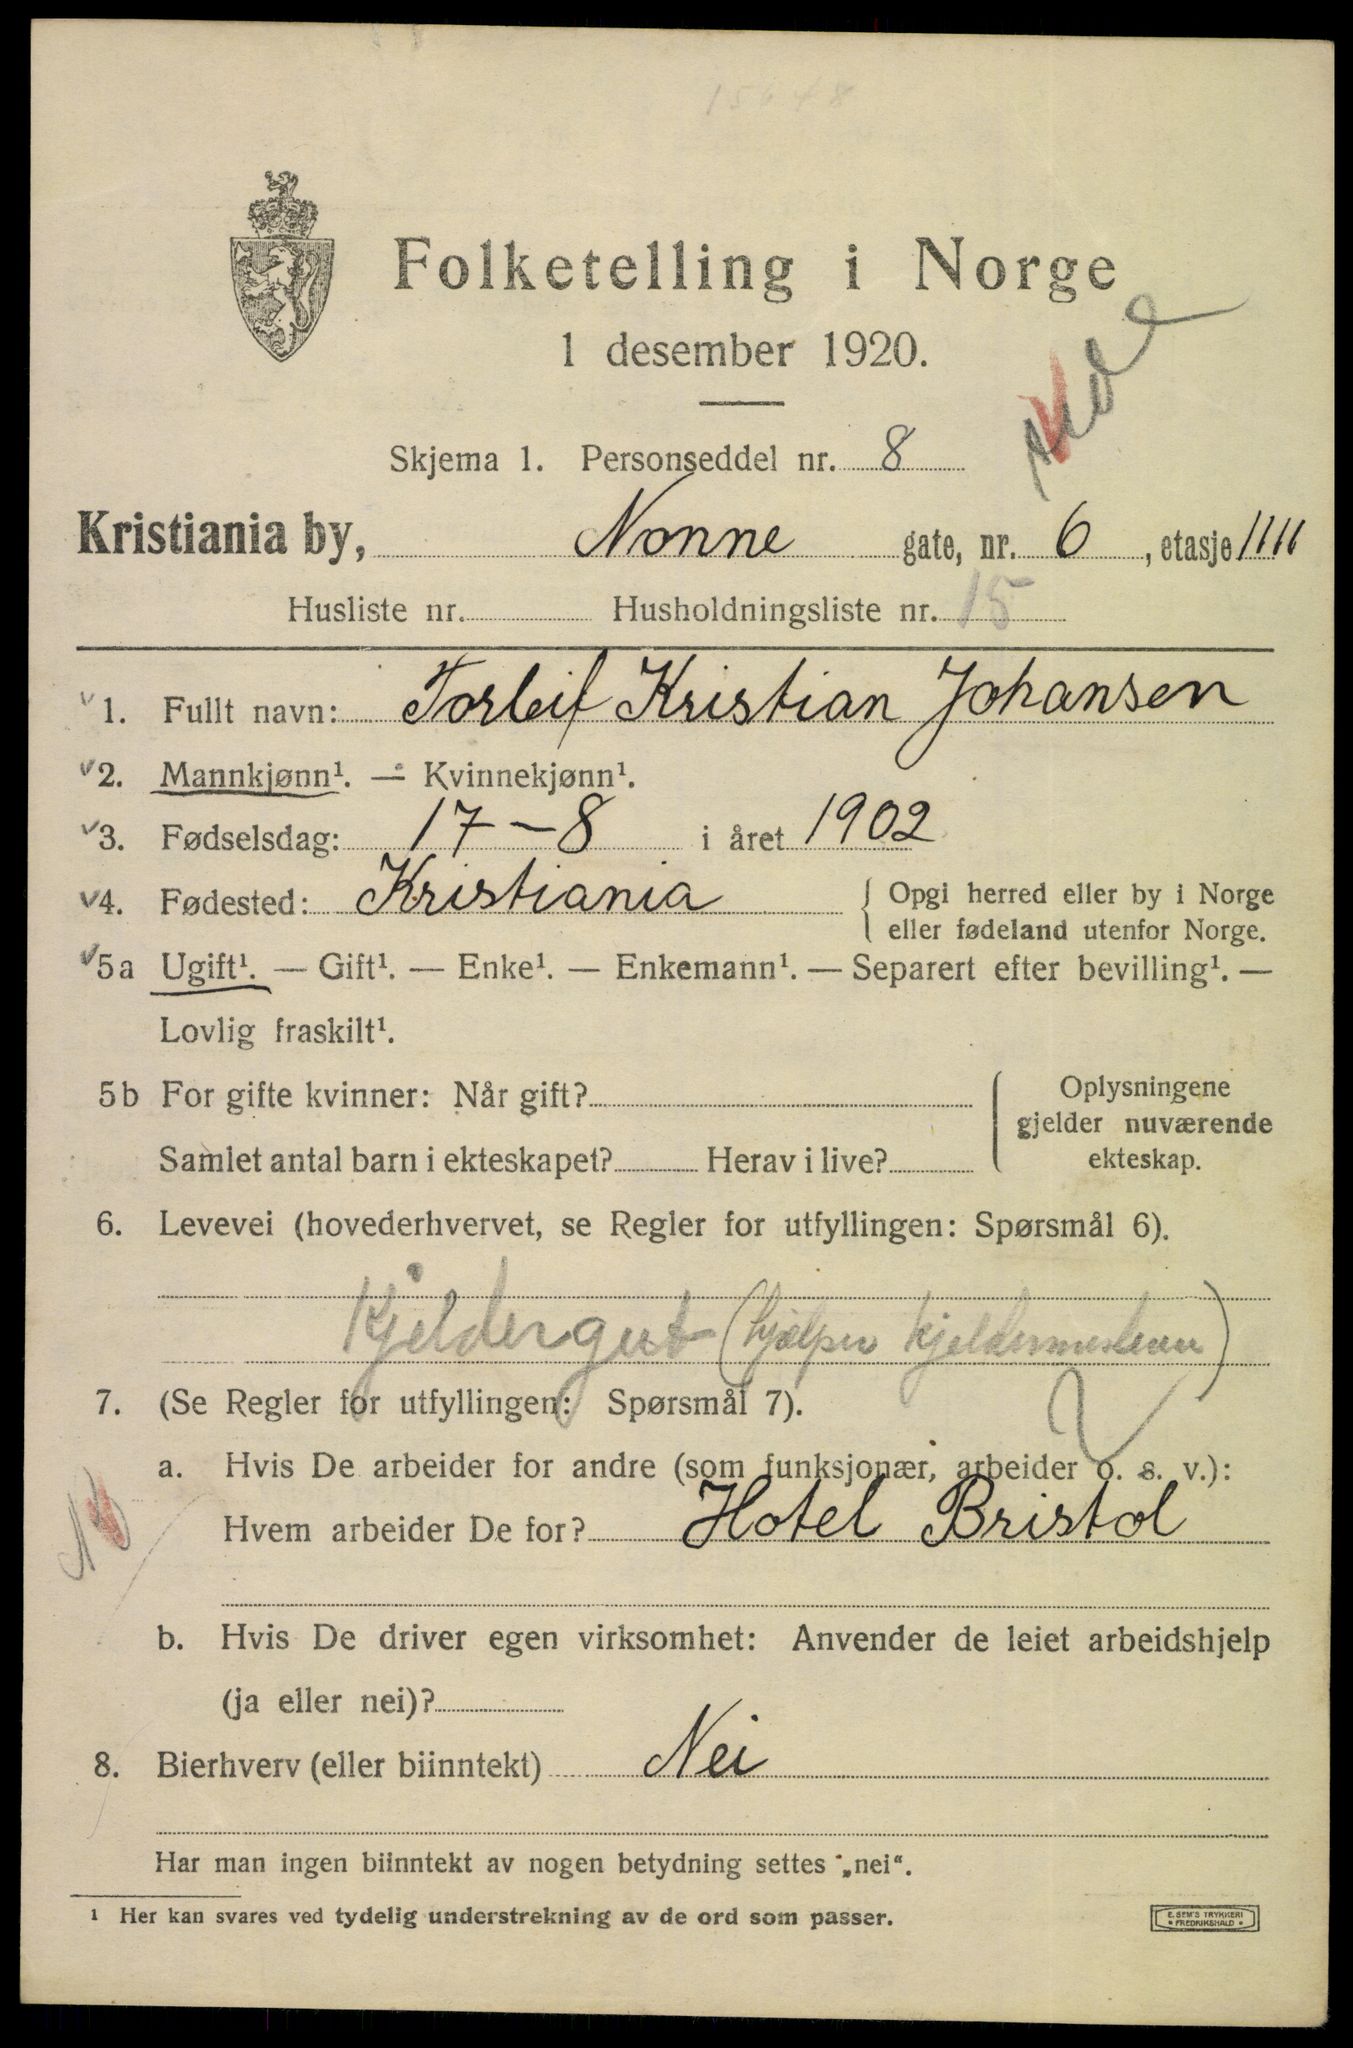 15648
Folketelling i Norge
1 desember 1920.
Skjema 1. Personseddel nr. 8
Kristiania by, Nonne gate, nr. 6, etasje 1111
Husliste nr. Husholdningsliste nr. 15
1. Fullt navn: Torleif Kristian Johansen
2. Mannkjønn¹. — Kvinnekjønn¹.
3. Fødselsdag: 17-8 i året 1902
4. Fødested: Kristiania { Opgi herred eller by i Norge
eller fødeland utenfor Norge.
5a Ugift¹. — Gift¹. — Enke¹. — Enkemann¹. — Separert efter bevilling¹. —
Lovlig fraskilt¹.
5b For gifte kvinner: Når gift? Oplysningene
gjelder nuværende
Samlet antal barn i ekteskapet? Herav i live? ekteskap.
6. Levevei (hovederhvervet, se Regler for utfyllingen: Spørsmål 6).
Kjeldergut (hjælper kjeldermesteren)
7. (Se Regler for utfyllingen: Spørsmål 7).
a. Hvis De arbeider for andre (som funksjonær, arbeider o. s. v.):
Hvem arbeider De for? Hotel Bristol
b. Hvis De driver egen virksomhet: Anvender de leiet arbeidshjelp
(ja eller nei)?
8. Bierhverv (eller biinntekt) Nei
Har man ingen biinntekt av nogen betydning settes „nei“.
¹ Her kan svares ved tydelig understrekning av de ord som passer.
E. SEM'S TRYKKERI
FREDRIKSHALD